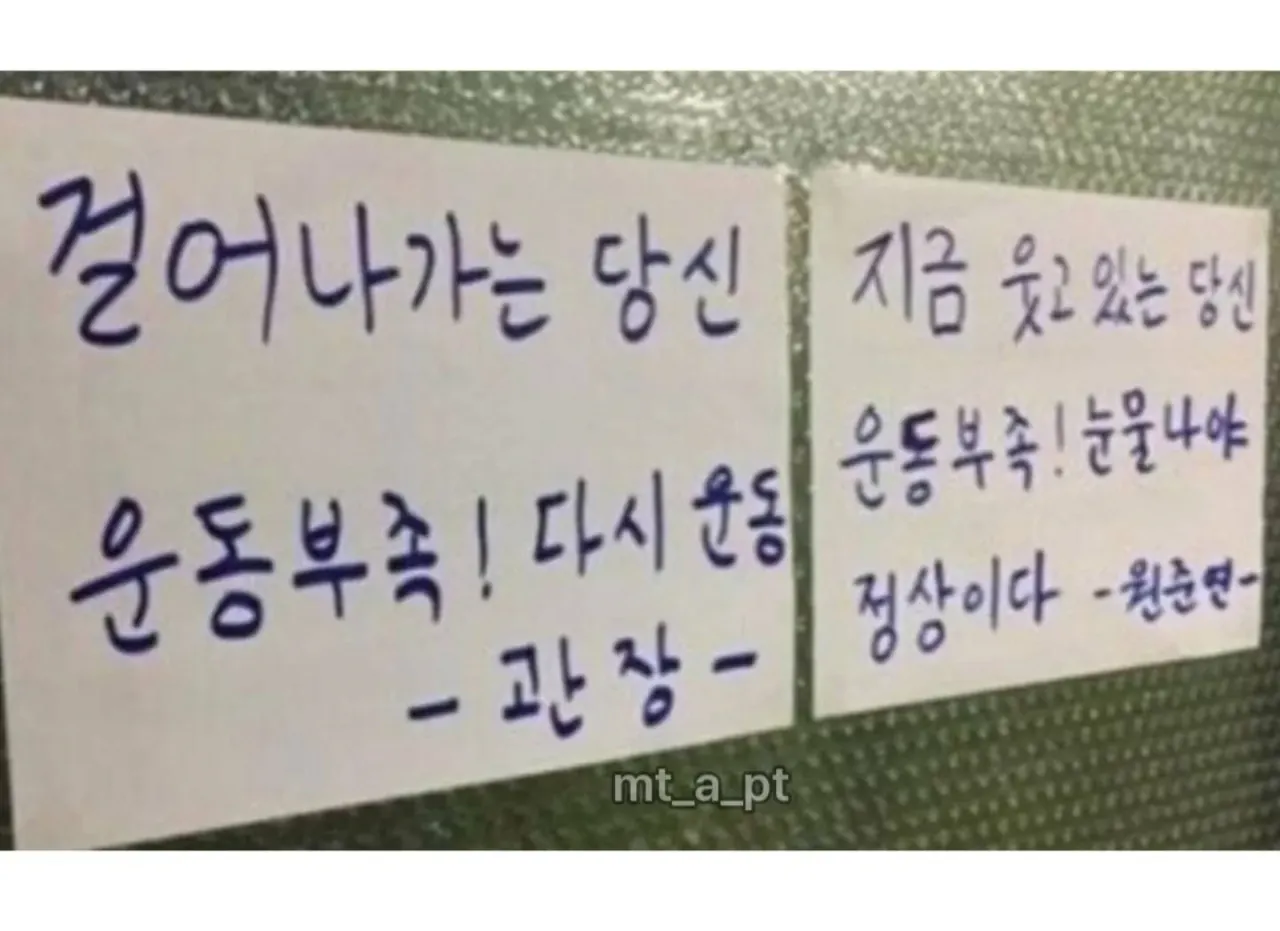 걸어나가는 당신
운동부족! 다시 운동
- 관장 -
지금 웃고 있는 당신
운동부족! 눈물나야
정상이다 - 원준연 -
mt_a_pt